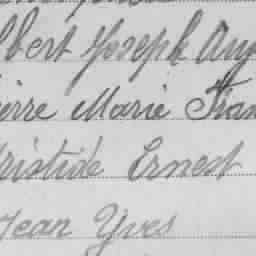 lbert Joseph Aug
ierre Marie Fran
ristide Ernest
Jean Yves